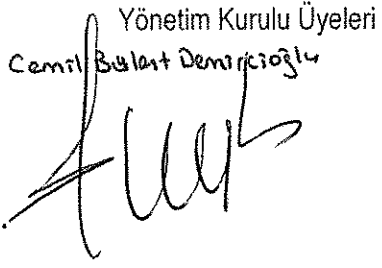 Yönetim Kurulu Üyeleri
Cemil Bülent Demircioğlu